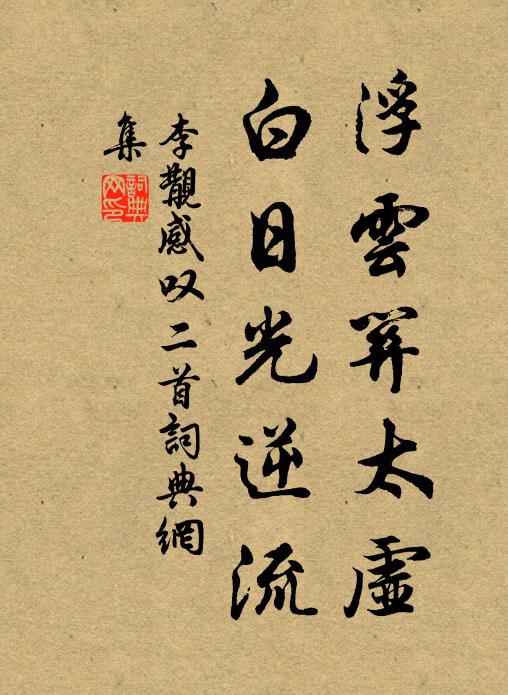 浮雲太虛
白日光逆流
李覯感叹二首詞典網
集
詞典
网印